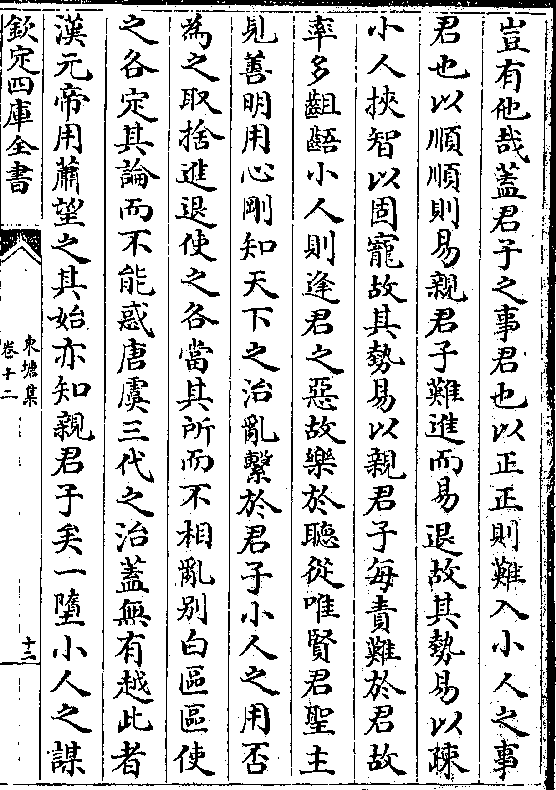 豈有他哉蓋君子之事君也以正正則難入小人之事
君也以順順則易親君子難進而易退故其勢易以疎
小人挾智以固寵故其勢易以親君子每責難於君故
率多齟齬小人則逢君之惡故樂於聽從唯賢君聖主
見善明用心剛知天下之治亂繫於君子小人之用否
為之取捨進退使之各當其所而不相亂别白區區使
之各定其論而不能惑唐虞三代之治蓋無有越此者
漢元帝用蕭望之其始亦知親君子矣一墮小人之謀
欽定四庫全書
東塘集
卷十二
十二